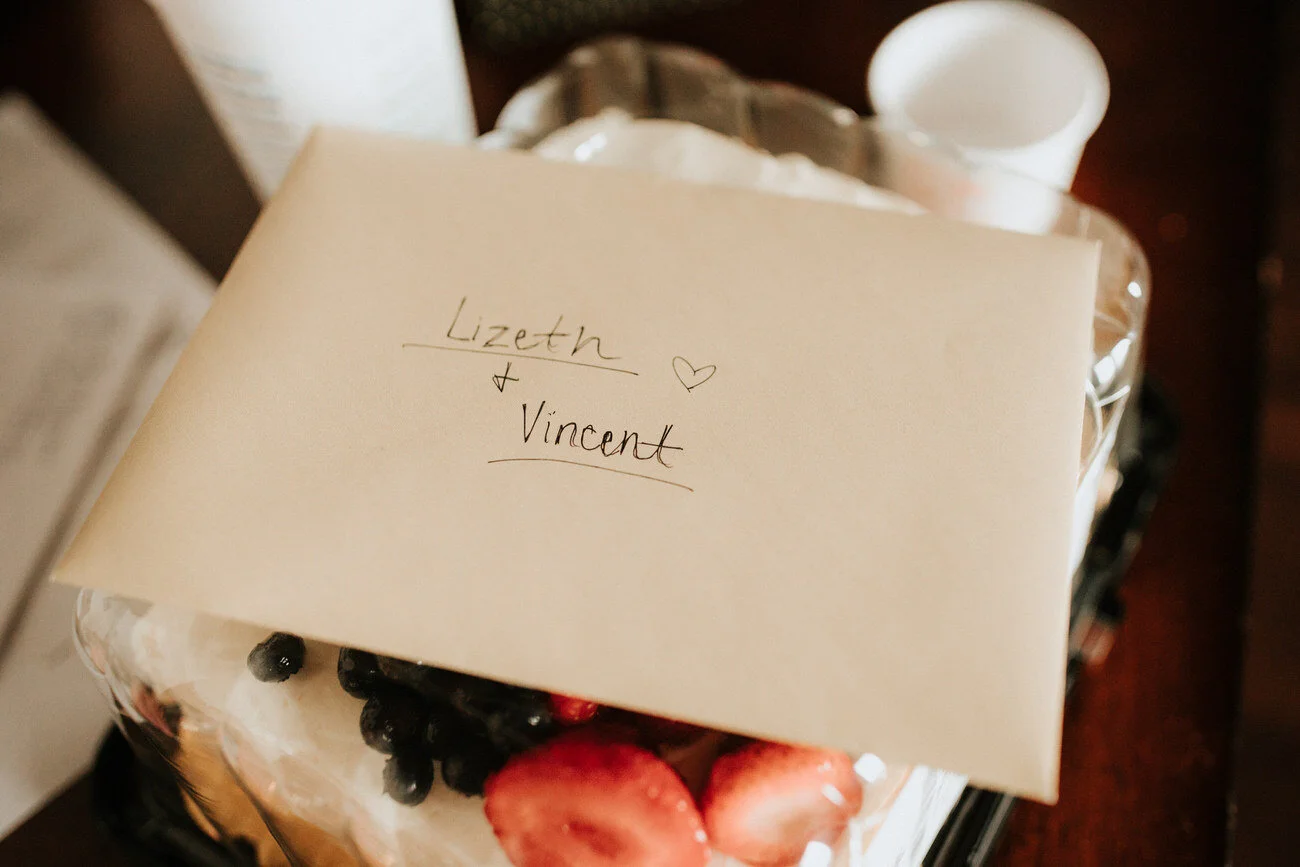 Lizeth
+ ♡
Vincent